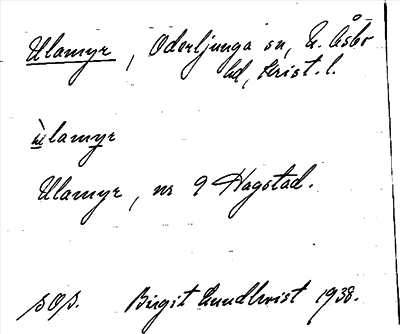 Ulamyr, Oderljunga sn, N. Åsbo
hd, Krist. l.
ùlamyr
Ulamyr, nr 9 Hagstad.
sOs. Birgit Lundkvist 1938.